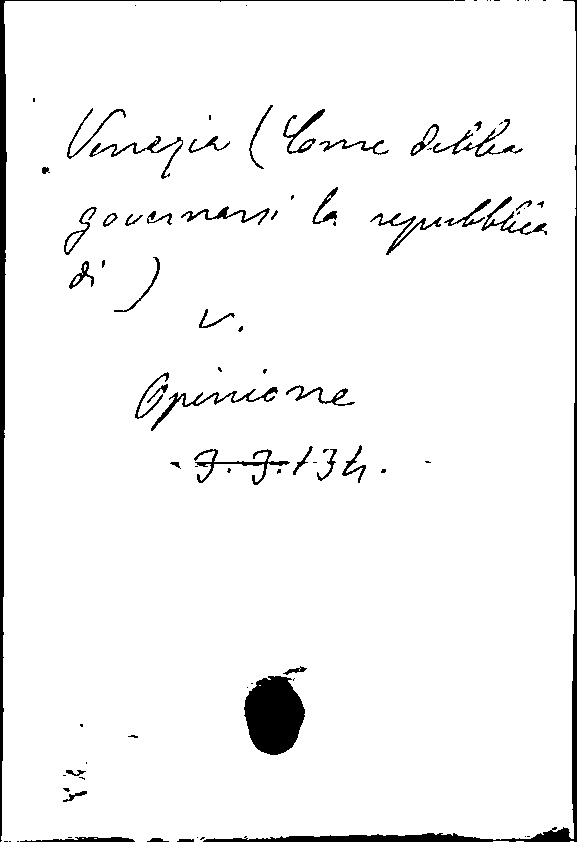 Venezia (Come debba
governarsi la repubblica
di)
v.
Opinione